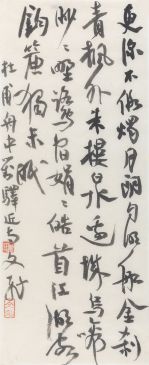 更深不假燭月朗自明船金刹
青楓外朱樓白水邊城烏啼
眇眇野鷺宿娟娟皓首江湖客
鈎簾獨未眠
杜甫舟月對驛近寺